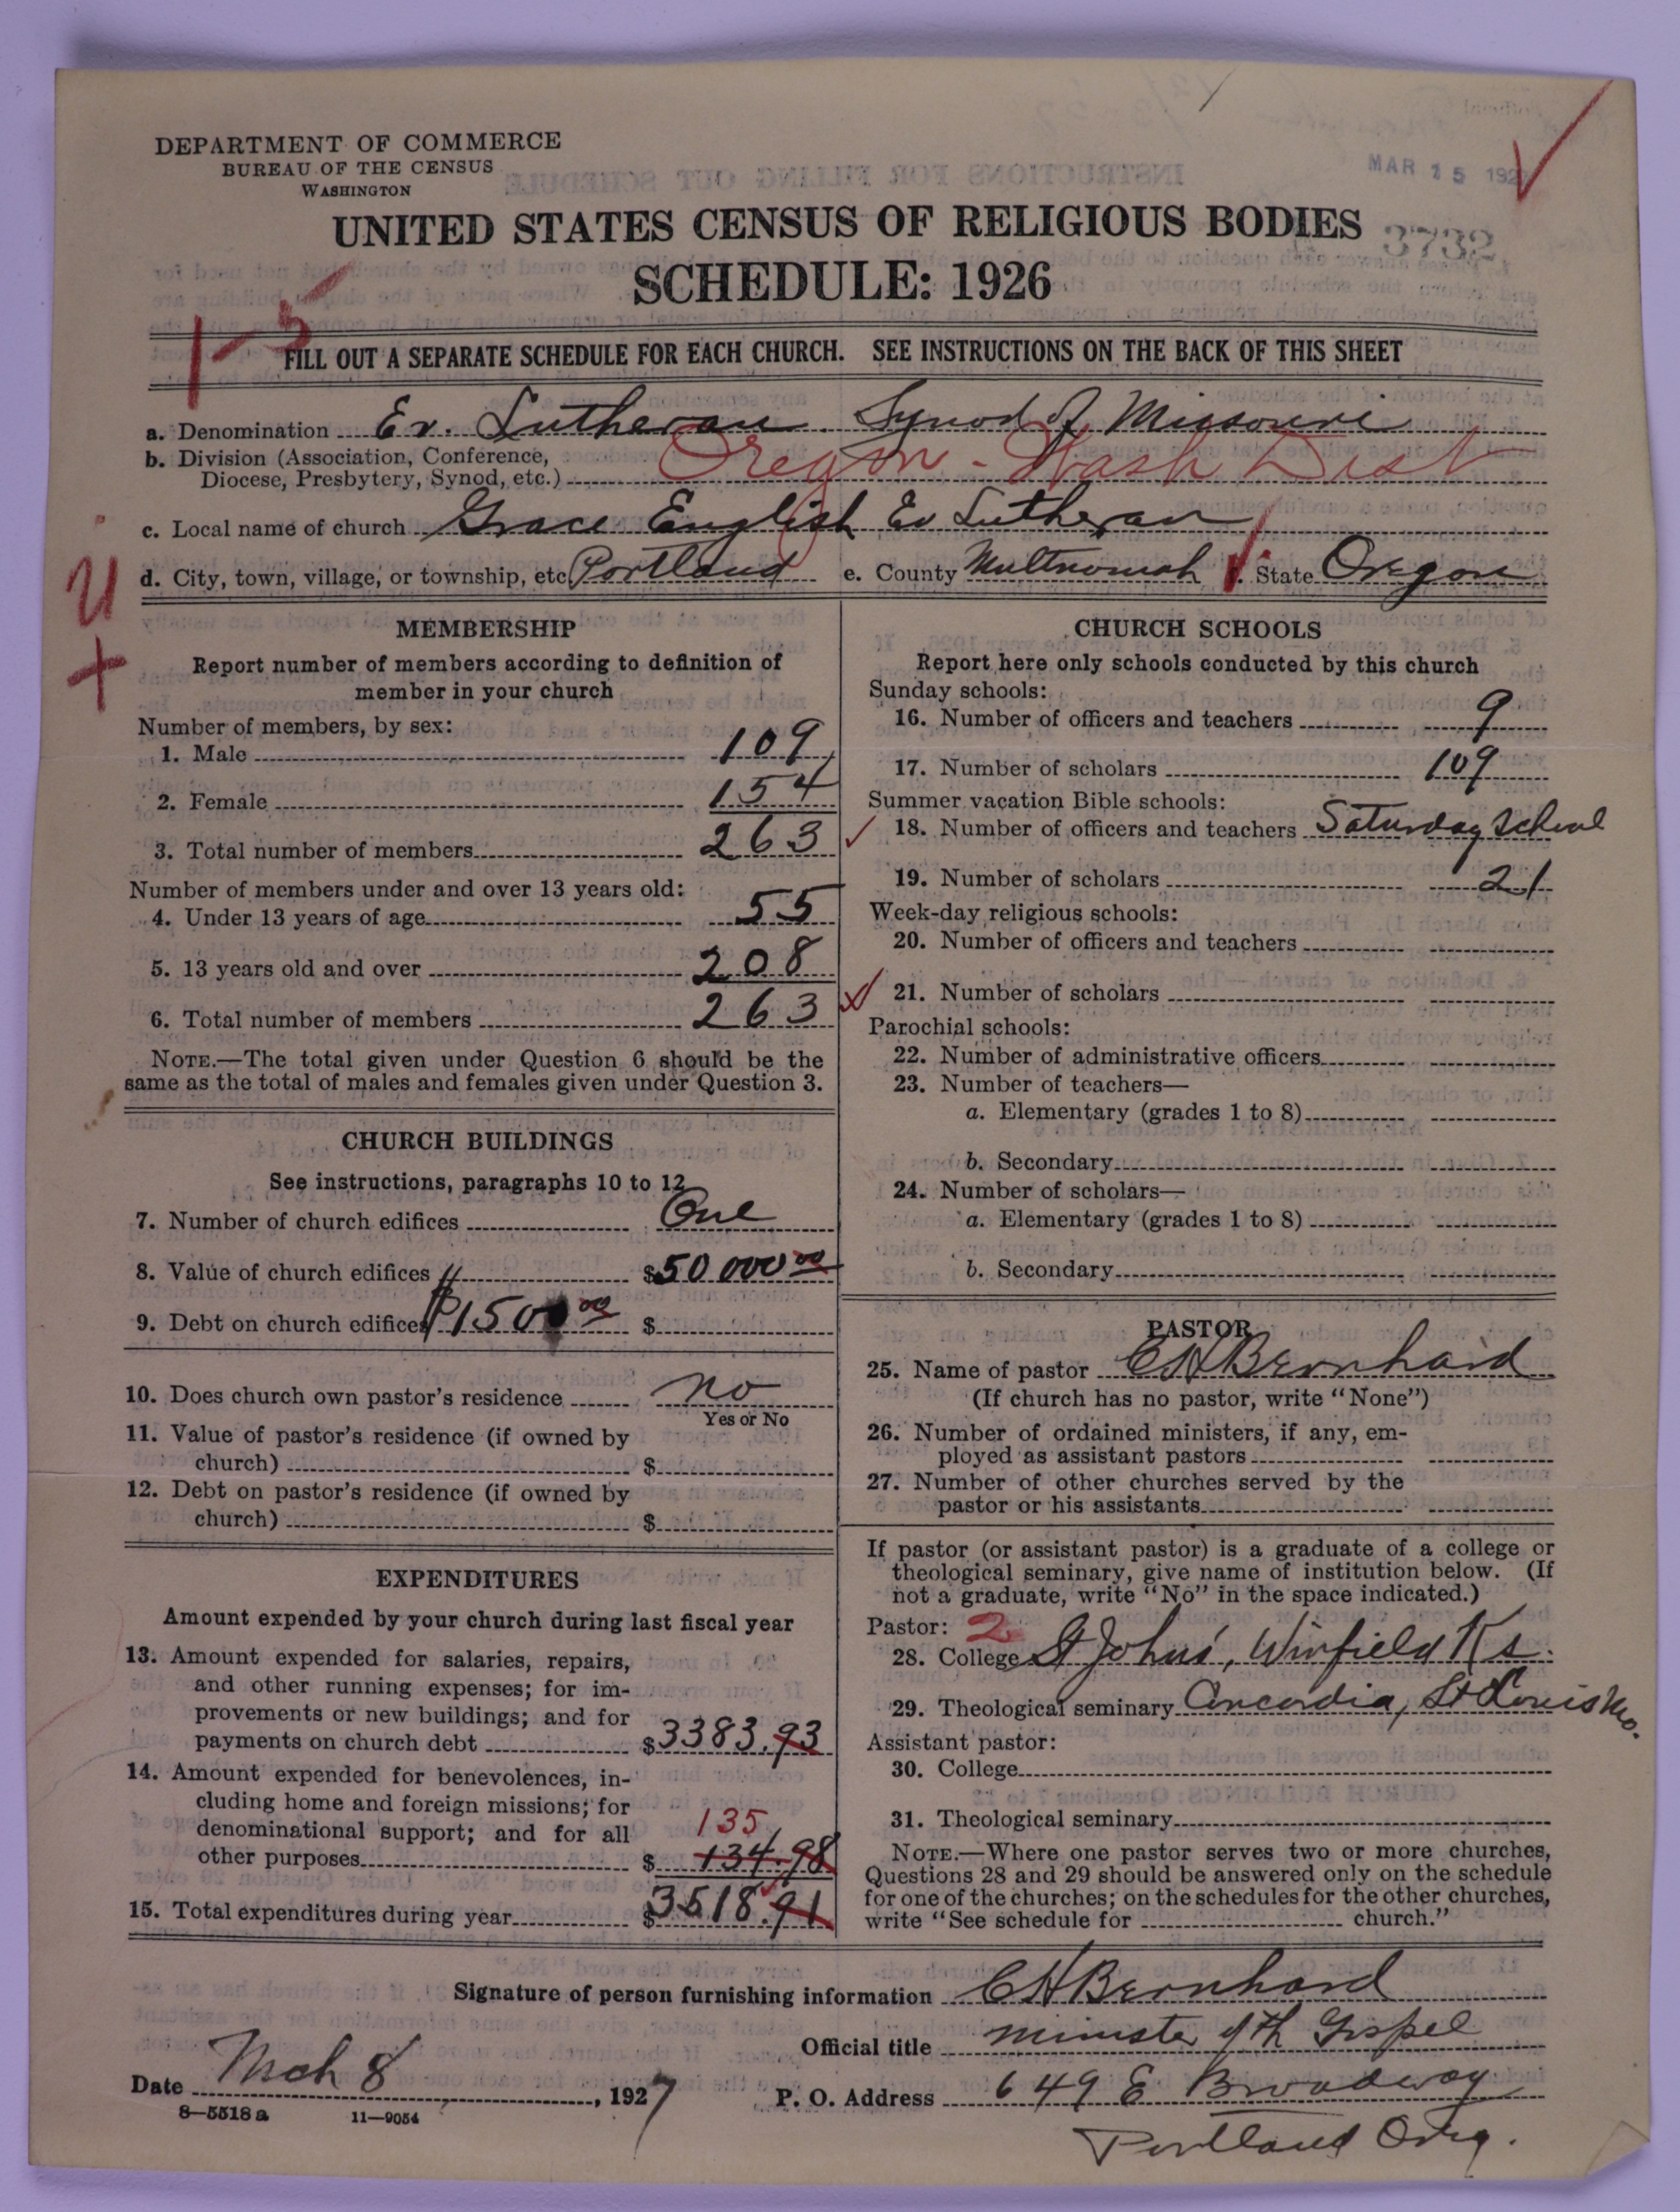 DEPARTMENT OF COMMERCE
BUREAU OF THE CENSUS
WASHINGTON
MAR 15 192
UNITED STATES CENSUS OF RELIGIOUS BODIES
3732
SCHEDULE: 1926
1-5
FILL OUT A SEPARATE SCHEDULE FOR EACH CHURCH. SEE INSTRUCTIONS ON THE BACK OF THIS SHEET
a. Denomination Ev. Lutheran Synod of Missouri
b. Division (Association, Conference,
Diocese, Presbytery, Synod, etc.) Oregon - Wash Dist
c. Local name of church Grace English Ev Lutheran
d. City, town, village, or township, etc. Portland e. County Multnomah f. State Oregon
U
+
MEMBERSHIP
Report number of members according to definition of
member in your church
Number of members, by sex:
1. Male 109
2. Female 154
3. Total number of members 263
Number of members under and over 13 years old:
4. Under 13 years of age 55
5. 13 years old and over 208
6. Total number of members 263
NOTE.—The total given under Question 6 should be the
same as the total of males and females given under Question 3.
CHURCH BUILDINGS
See instructions, paragraphs 10 to 12
7. Number of church edifices One
8. Value of church edifices $50 000 00
9. Debt on church edifices $1500 00 $
10. Does church own pastor's residence no
Yes or No
11. Value of pastor's residence (if owned by
church) $
12. Debt on pastor's residence (if owned by
church) $
EXPENDITURES
Amount expended by your church during last fiscal year
13. Amount expended for salaries, repairs,
and other running expenses; for im-
provements or new buildings; and for
payments on church debt $3383.93
14. Amount expended for benevolences, in-
cluding home and foreign missions; for
denominational support; and for all 135
other purposes $134.98
15. Total expenditures during year $3518.91
CHURCH SCHOOLS
Report here only schools conducted by this church
Sunday schools:
16. Number of officers and teachers 9
17. Number of scholars 109
Summer vacation Bible schools:
18. Number of officers and teachers Saturday School
19. Number of scholars 21
Week-day religious schools:
20. Number of officers and teachers
21. Number of scholars
Parochial schools:
22. Number of administrative officers
23. Number of teachers—
a. Elementary (grades 1 to 8)
b. Secondary
24. Number of scholars—
a. Elementary (grades 1 to 8)
b. Secondary
PASTOR
25. Name of pastor CH Bernhard
(If church has no pastor, write "None")
26. Number of ordained ministers, if any, em-
ployed as assistant pastors
27. Number of other churches served by the
pastor or his assistants
If pastor (or assistant pastor) is a graduate of a college or
theological seminary, give name of institution below. (If
not a graduate, write "No" in the space indicated.)
Pastor: 2
28. College St Johns', Winfield Ks.
29. Theological seminary Concordia, St Louis Mo.
Assistant pastor:
30. College
31. Theological seminary
NOTE.—Where one pastor serves two or more churches,
Questions 28 and 29 should be answered only on the schedule
for one of the churches; on the schedules for the other churches,
write "See schedule for church."
Signature of person furnishing information CH Bernhard
Official title minister of th Gospel
Date Mch 8, 1927 P. O. Address 649 E Broadway
8—5518 a 11—9054
Portland Oreg.